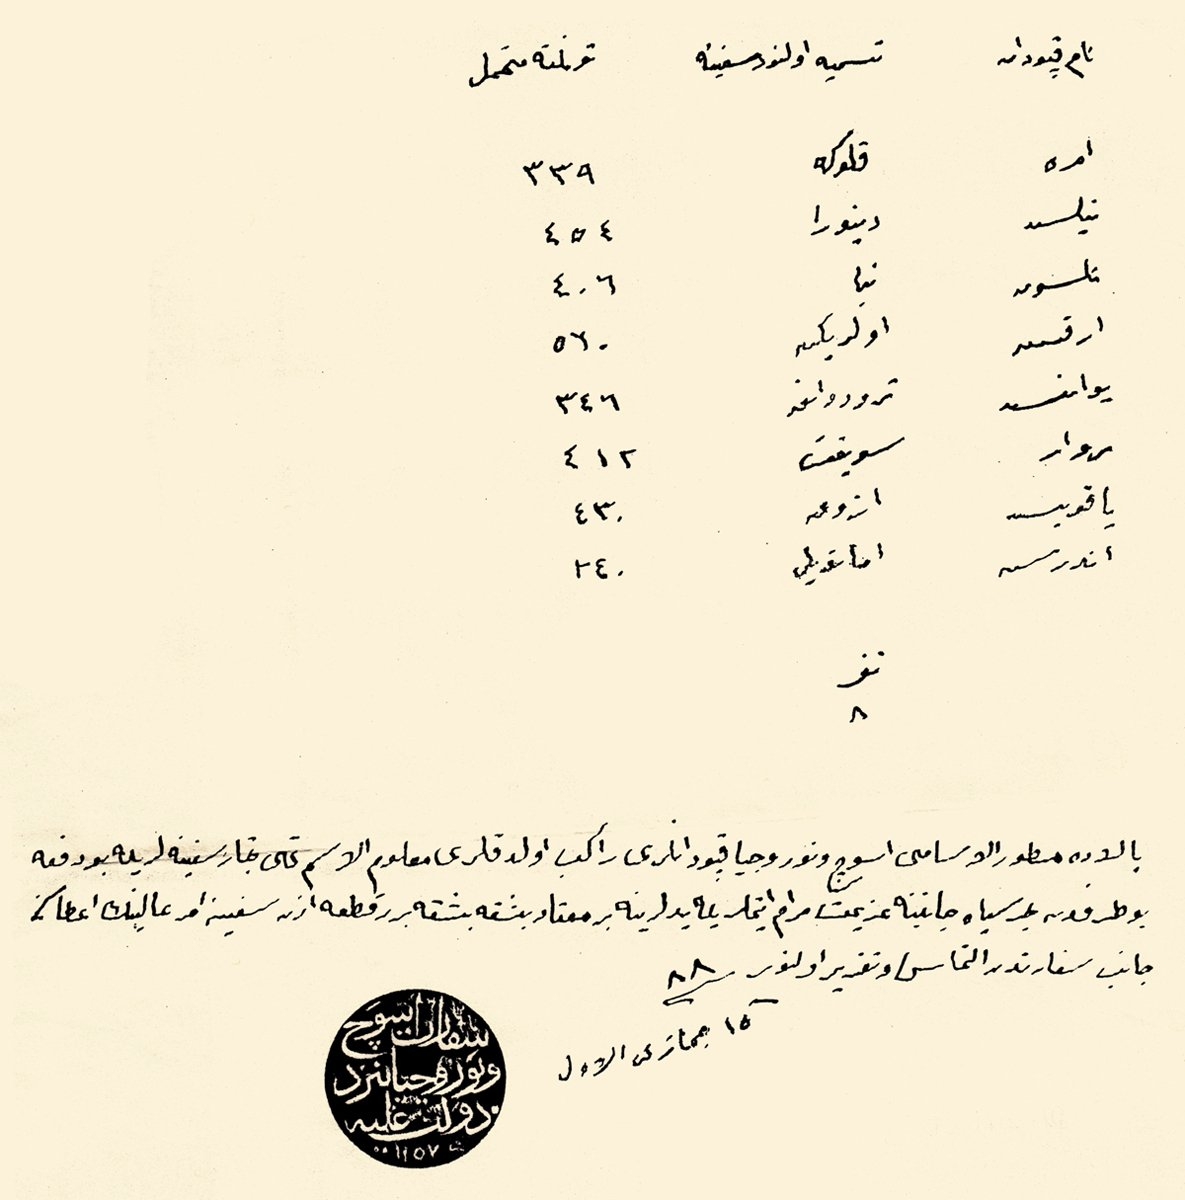 نام قپودان تسمیه اولنور سفینه تونلته متحمل
امره قلوکه ٣٣٩
نیلسن دینورا ٤٥٤
نلسون نپا ٤٠٦
ارقسن اولریكن ٥٦٠
یوانسن ترودوانغ ٣٤٦
سویفت ٤١٢
یاقوبسن ٤٣٠
اندرسن ٢٤٠
نفر
٨
بالاده مسطور الاسامی اسوج ونوروجیا قپودانلری راکب اولدقلری معلوم الاسم تجار سفینه لریله بو دفعه
بو طرفدن بحر سیاه جانبنه عزیمت مرام ایتملریله یدلرینه بر معتاد بشقه بشقه برر قطعه اذن سفینه امر عالیلرینك اعطاسی
جانب سفارتدن التماس وتقریر اولنور سنه ٨٨
١٥ جمازی الاول
سفارت اسوج
ونوروجیا نزد
دولت علیه
١١٥٧